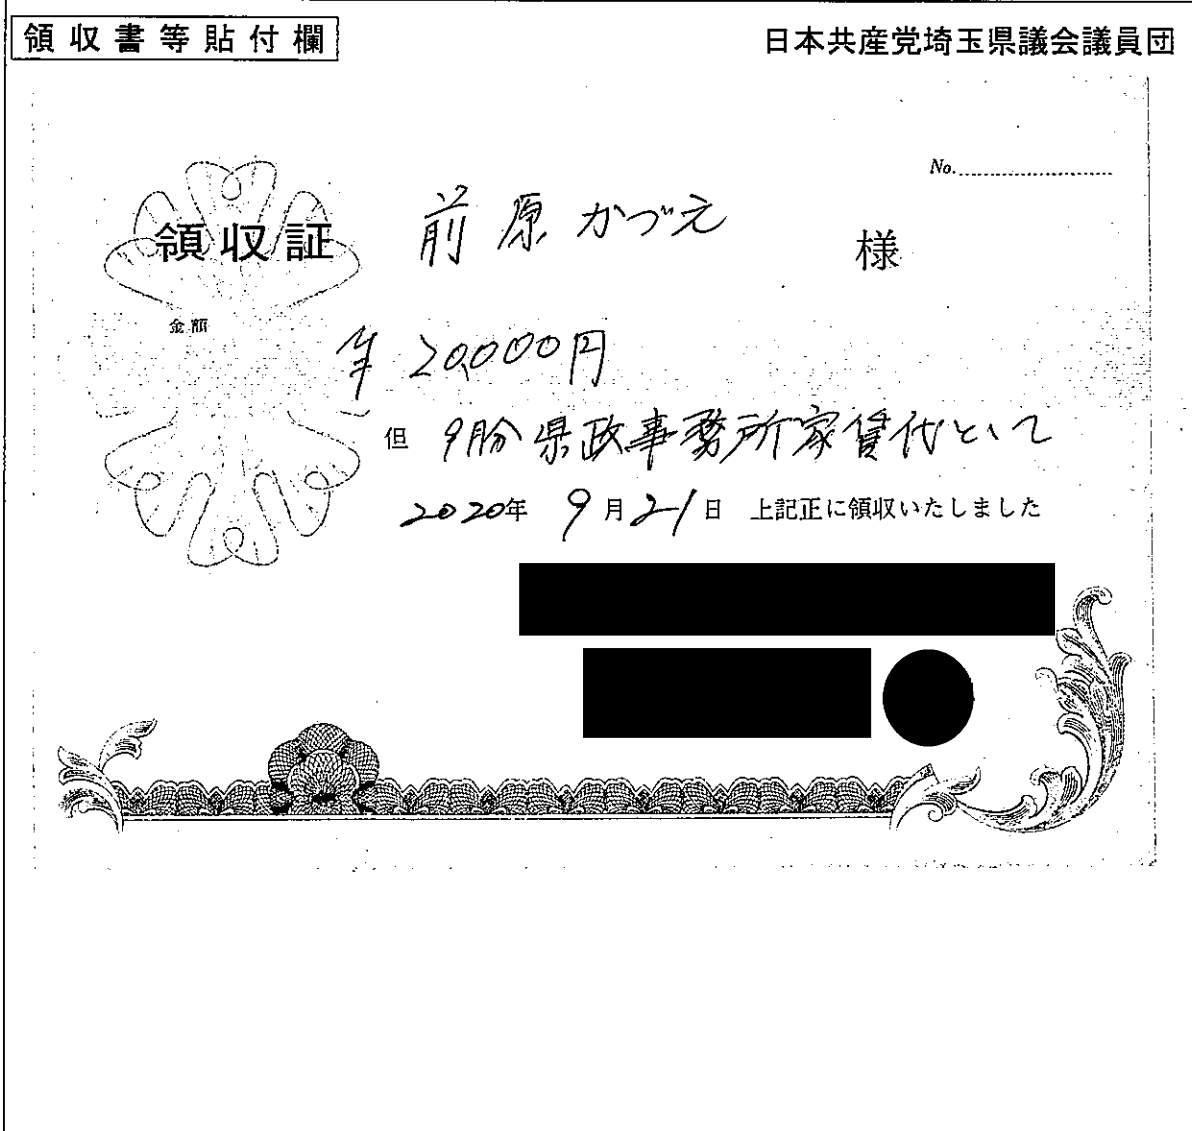 領収書等貼付欄
日本共産党埼玉県議会議員団
No.
領収証 前原かづえ 様
金額
20,000円
但 9月分県政事務所家賃代として
2020年 9月21日 上記正に領収いたしました